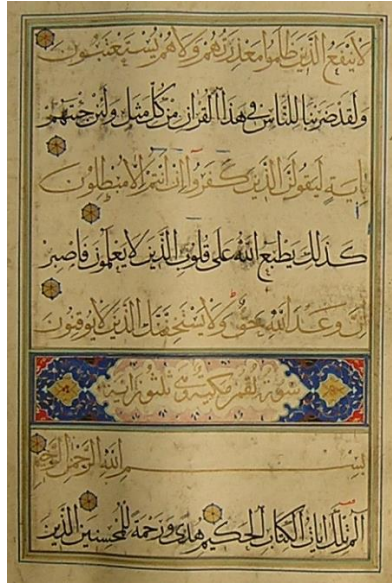 لا ينفع الذين ظلموا معذرتهم ولا هم يستعتبون
ولقد ضربنا للناس في هذا القران من كل مثل ولئن جئتهم
باية ليقولن الذين كفروا ان انتم الا مبطلون
كذلك يطبع الله على قلوب الذين لا يعلمون فاصبر
ان وعد الله حق ولا يستخفنك الذين لا يوقنون
سورة لقمن مكية وهي ثلثون اية
بسم الله الرحمن الرحيم
الم تلك ايات الكتاب الحكيم هدى ورحمة للمحسنين الذين